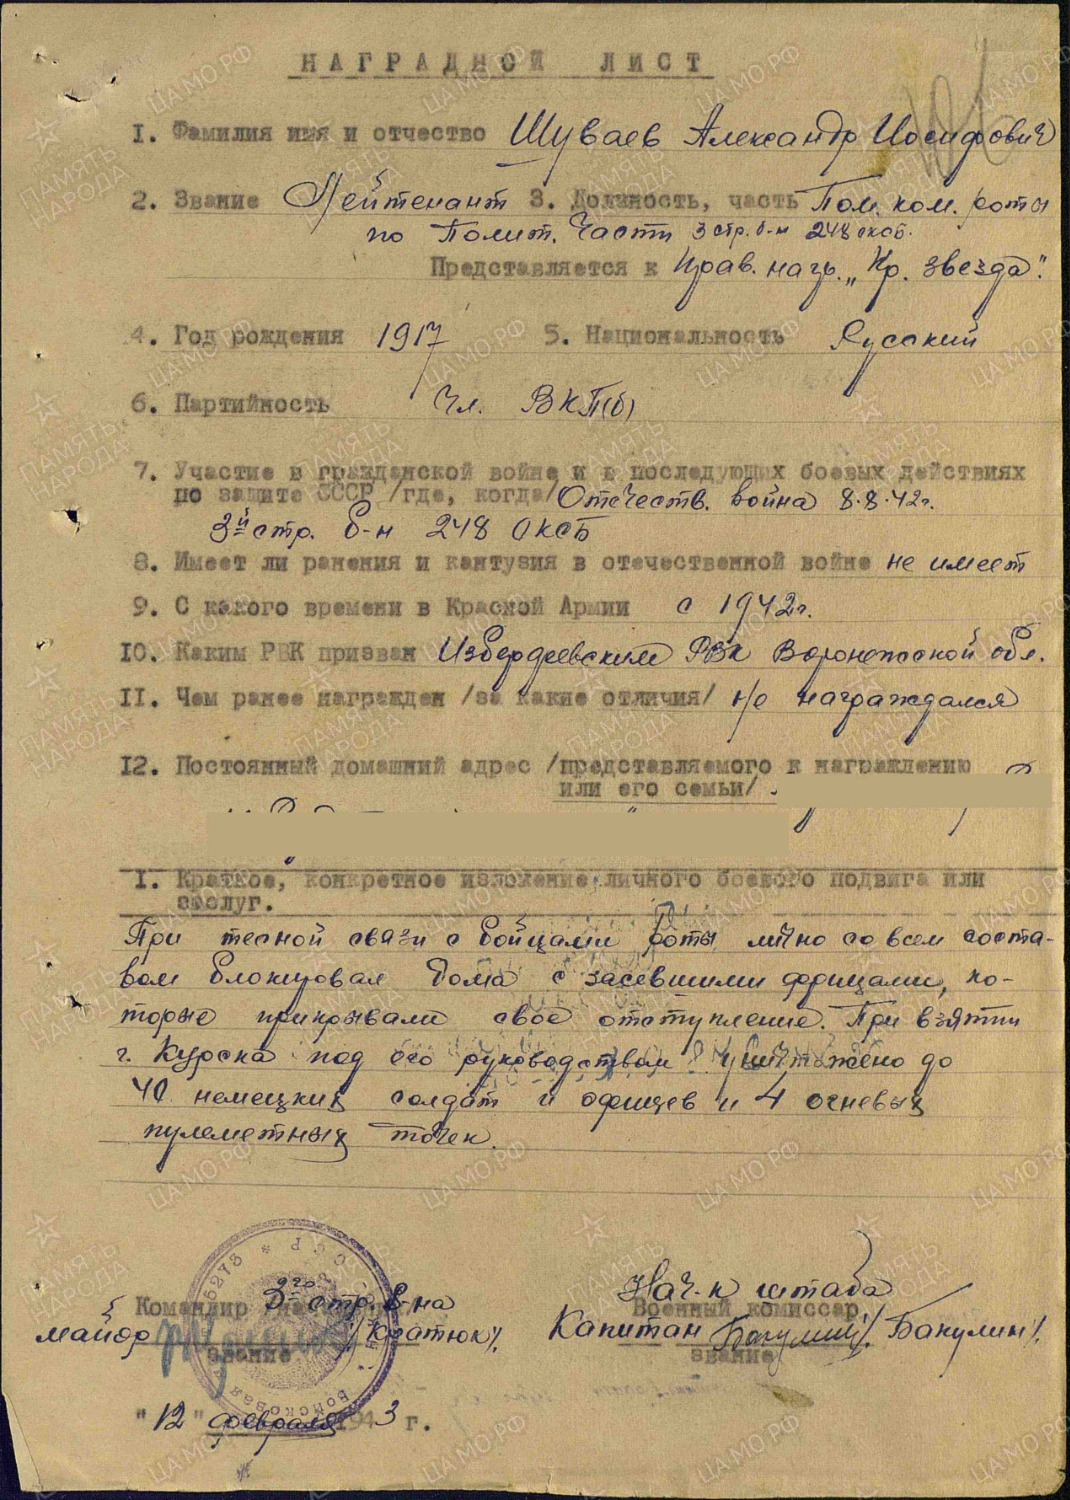 НАГРАДНОЙ ЛИСТ
1. Фамилия имя и отчество Шуваев Александр Иосифович
2. Звание Лейтенант 3. Должность, часть Пом. ком. роты
по Полит. Части 3 стр. б-н 248 оксб.
Представляется к Прав. нагр. „Кр. Звезда".
4. Год рождения 1917 5. Национальность Русский
6. Партийность Чл. ВКП(б)
7. Участие в гражданской войне и в последующих боевых действиях
по защите СССР /где, когда/ Отечеств. война 8.8.42г.
3й стр. б-н 248 ОКСБ
8. Имеет ли ранения и кантузия в отечественной войне не имеет
9. С какого времени в Красной Армии с 1942г.
10. Каким РВК призван Избердеевским РВК Воронежской обл.
11. Чем ранее награжден /за какие отличия/ не награждался
12. Постоянный домашний адрес /представляемого к награждению
или его семьи/
1. Краткое, конкретное изложение личного боевого подвига или
заслуг.
При тесной связи с бойцами роты лично со всем соста-
вом блокировал дома с засевшими фрицами, ко-
торые прикрывали свое отступление. При взятии
г. Курска под его руководством уничтожено до
40 немецких солдат и офицев и 4 огневых
пулеметных точек.
Командир 3го стр. б-на
майор /Югатюк/.
звание
Нач-к штаба
Военный комиссар
Капитан Бакулин /Бакулин/.
звание
"12" февраля 1943 г.